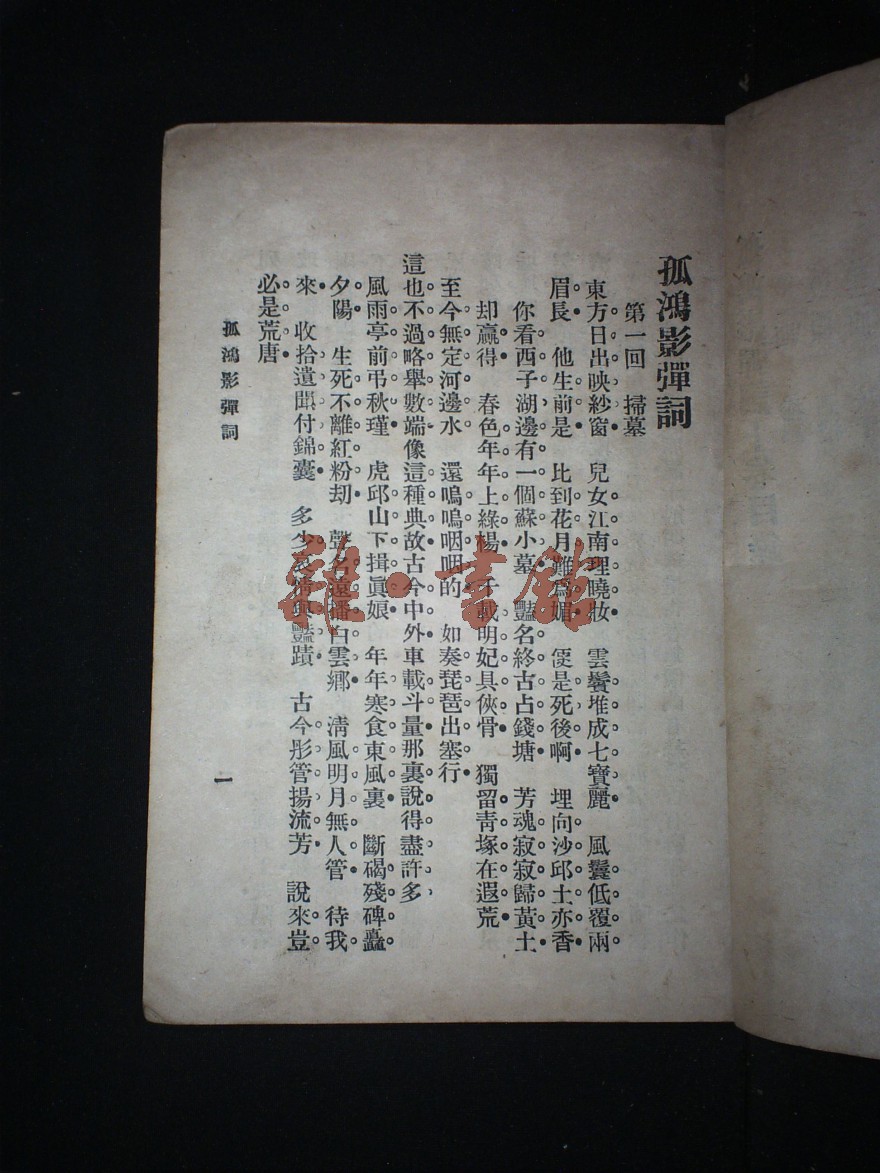 孤鴻影彈詞
第一回　掃墓
東方日出映紗窗　兒女江南理曉妝　雲鬢堆成七寶麗　風鬟低覆兩
眉長　他生前是　比到花月難爲媚　便是死後啊　埋向沙邱土亦香
你看西子湖邊有一個蘇小墓　豔名終古占錢塘　芳魂寂寂歸黃土
却贏得　春色年年上綠楊　千載明妃具俠骨　獨留靑塚在遐荒
至今無定河邊水　還嗚嗚咽咽的　如奏琵琶出塞行
這也不過略舉數端像這種典故古今中外車載斗量那裏說得盡許多
風雨亭前弔秋瑾　虎邱山下揖眞娘　年年寒食東風裏　斷碣殘碑矗
夕陽　生死不離紅粉刧　聲名遠播白雲鄉　淸風明月無人管　待我
來　收拾遺聞付錦囊　多少哀情與豔蹟　古今彤管揚流芳　說來豈
必是荒唐
孤鴻影彈詞
一
雜·書館